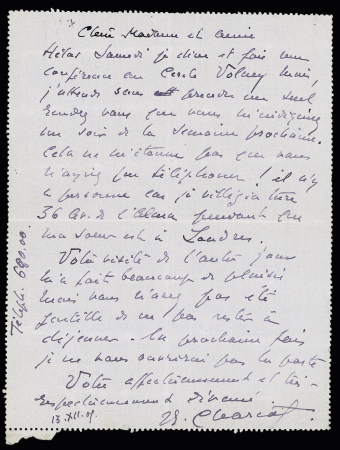 Chère Madame et amie
Hélas Samedi je dine et fais une
conférence au Cercle Volney mais
j'attends sans prendre un seul
rendez vous que vous m'indiquiez
un soir de la semaine prochaine.
Cela ne m'étonne pas que vous
n'ayiez pu téléphoner ! il n'y
a personne car je villégiature
36 Av. de l'Alma pendant que
ma soeur est à Londres.
Votre visite de l'autre jour
m'a fait beaucoup de plaisir
mais vous n'avez pas été
gentille de ne pas rester à
déjeuner. La prochaine fois
je ne vous ouvrirai pas la porte
Votre affectueusement et très
respectueusement dévoué
13.XII.
Téléph. 680.00.